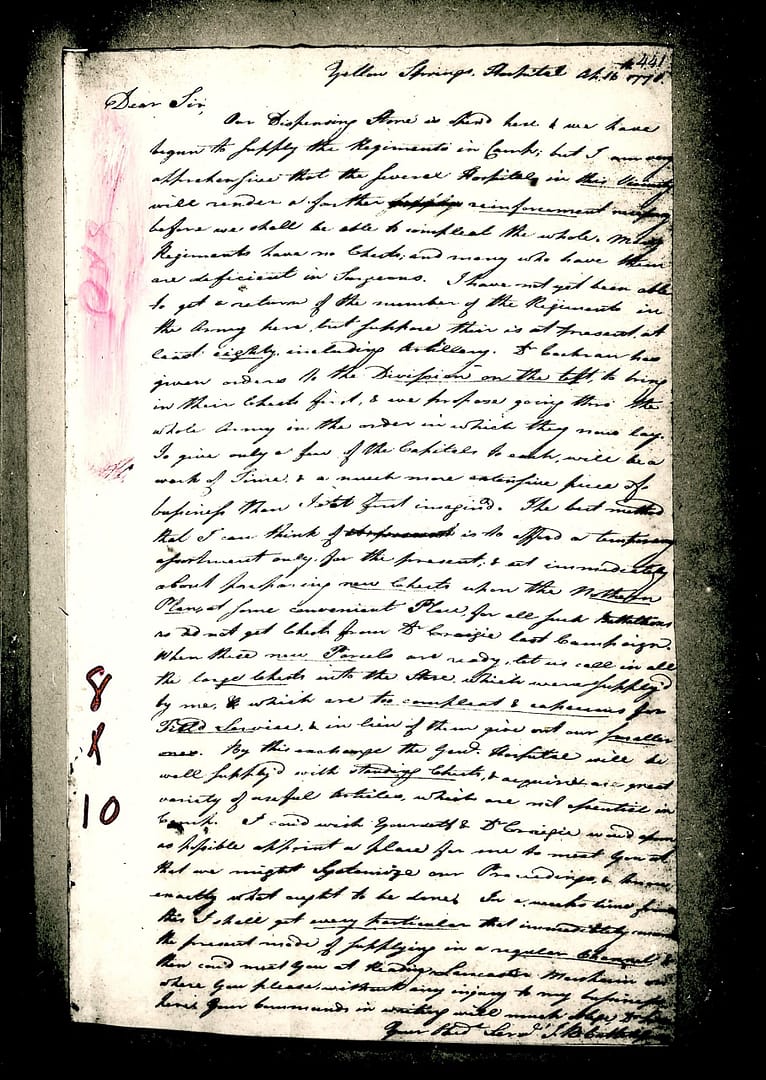 441
Yellow Springs, Hospital Ap. 16th 1778.
Dear Sir,
Our Dispensing Store is open'd here & we have
begun to supply the Regiments in Camp; but I am very
apprehensive that the several Hospitals in this Vicinity
will render a further supply reinforcement necessary
before we shall be able to compleat the whole. Many
Regiments have no Chests, and many who have them
are deficient in Surgeons. I have not yet been able
to get a return of the number of the Regiments in
the Army here, but suppose their is at present, at
least eighty, including Artillery. Dr Cochran has
given orders to the Division on the left, to bring
in their Chests first, & we propose going thro the
whole Army in the order in which they now lay.
To give only a few of the Capitals to each, will be a
work of Time, & a much more extensive piece of
business than I at first imagin'd. The best method
that I can think of is to afford a temporary
assortment only, for the present, & set immediately
about preparing new Chests upon the Northern
Plan, at some convenient Place, for all such Battalions
as did not get Chests from Dr Craigie last Campaign.
When these new Parcels are ready, let us call in all
the large Chests into the Store, which were supply'd
by me, & which are too compleat & expensive for
Field Service, & in lieu of them give out our smaller
ones. By this exchange the Genl. Hospital will be
well supply'd with standing Chests, & acquire a great
variety of useful Articles, which are not essential in
Camp. I could wish Yourself & Dr Craigie would as soon
as possible appoint a place for me to meet You at
that we might Systemize our Proceedings, & know
exactly what ought to be done. In a week's time from
this I shall get every particular that immediately
the present mode of supplying in a regular Channel &
then could meet You at Reading, Lancaster, Manheim or
where You please, without any injury to my business
here. Your Commands in writing will much oblige Dr Sir
Your Obedt. Servt.
8
X
10